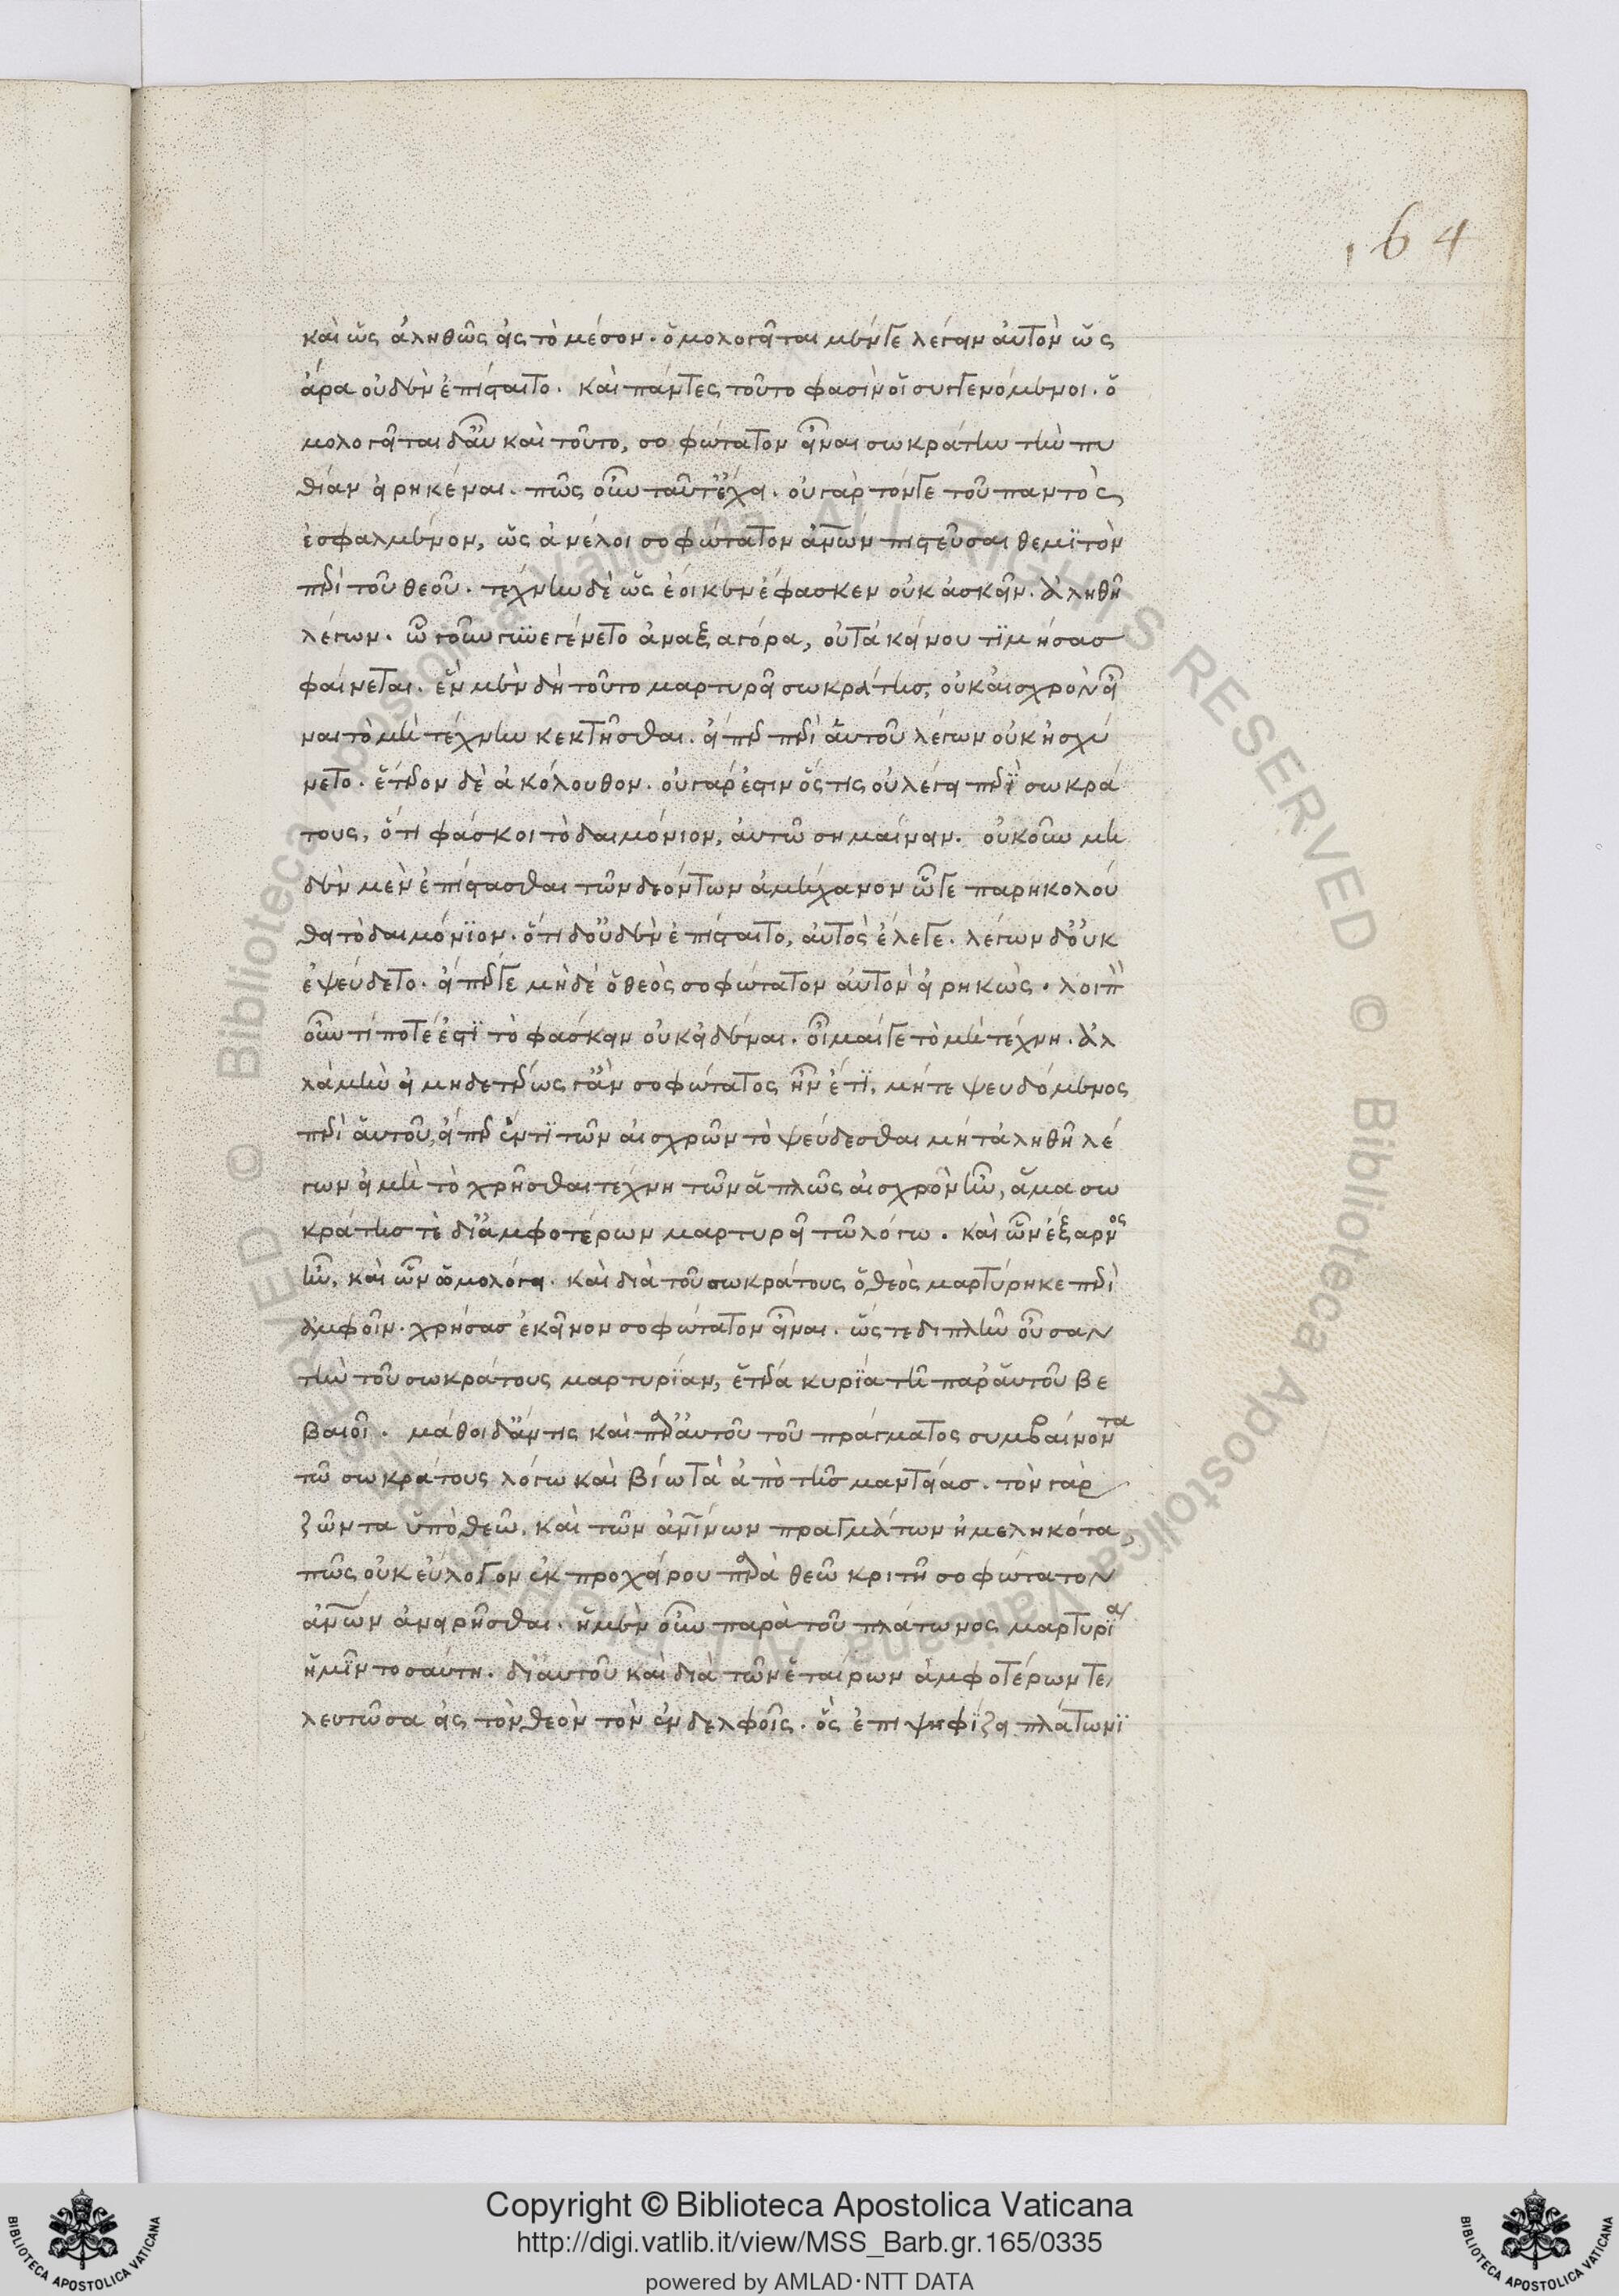 164
καὶ ὡς ἀληθῶς εἰς τὸ μέσον. ὁμολογεῖται μέν γε λέγειν αὐτὸν ὡς
ἄρα οὐδὲν ἐπίσταιτο. καὶ πάντες τοῦτο φασὶν οἱ συγγενόμενοι. ὁ
μολογεῖται δ' αὖ καὶ τοῦτο, σοφώτατον εἶναι σωκράτην τὴν πυ
θίαν εἰρηκέναι. πῶς οὖν ταῦτ' ἔχει. οὐ γὰρ τόν γε τοῦ παντὸς
ἐσφαλμένον, ὡς ἀνέλοι σοφώτατον ἀνῶν πιστεῦσαι θεμιτὸν
περὶ τοῦ θεοῦ. τέχνην δὲ ὡς ἔοικεν ἔφασκεν οὐκ ἀσκεῖν. ἀληθῆ
λέγων. ᾧ γοῦν συνεγένετο ἀναξαγόρα, οὐ τἀκείνου τιμήσας
φαίνεται. ἓν μὲν δὴ τοῦτο μαρτυρεῖ σωκράτης, οὐκ αἰσχρὸν εἶ
ναι τὸ μὴ τέχνην κεκτῆσθαι. εἴπερ περὶ αὑτοῦ λέγων οὐκ ᾐσχύ
νετο. ἕτερον δὲ ἀκόλουθον. οὐ γάρ ἐστιν ὅς τις οὐ λέγει περὶ σωκρά
τους, ὅτι φάσκοι τὸ δαιμόνιον, αὐτῷ σημαίνειν. οὐκοῦν μη
δὲν μὲν ἐπίστασθαι τῶν δεόντων ἀμήχανον ᾧ γε παρηκολού
θει τὸ δαιμόνιον. ὅτι δ' οὐδὲν ἐπίσταιτο, αὐτὸς ἔλεγε. λέγων δ' οὐκ
ἐψεύδετο. εἴπερ γε μὴ δὲ ὁ θεὸς σοφώτατον αὐτὸν εἰρηκὼς. λοιπὸν
οὖν τί ποτέ ἐστι τὸ φάσκειν οὐκ εἰδέναι. οἶμαί γε τὸ μὴ τέχνῃ. ἀλ
λὰ μὴν εἰ μηδετέρως γ' ἂν σοφώτατος ἦν ἔτι, μήτε ψευδόμενος
περὶ αὑτοῦ, εἴπερ ἕν τι τῶν αἰσχρῶν τὸ ψεύδεσθαι μήτ' ἀληθῆ λέ
γων εἰ μὴ τὸ χρῆσθαι τέχνῃ τῶν ἁπλῶς αἰσχρὸν ἦν, ἅμα σω
κράτης τε δι' ἀμφοτέρων μαρτυρεῖ τῷ λόγῳ. καὶ ὧν ἔξαρνος
ἦν, καὶ ὧν ὡμολόγει. καὶ διὰ τοῦ σωκράτους ὁ θεὸς μαρτύρηκε περὶ
ἀμφοῖν. χρήσας ἐκεῖνον σοφώτατον εἶναι. ὥς τε διπλῆν οὖσαν
τὴν τοῦ σωκράτους μαρτυρίαν, ἑτέρα κυρία τῇ παρ' αὑτοῦ βε
βαιοῖ. μάθοι δ' ἄν τις καὶ παρ' αὐτοῦ τοῦ πράγματος συμβαίνοντα
τῷ σωκράτους λόγῳ καὶ βίῳ τὰ ἀπὸ τῆς μαντείας. τὸν γὰρ
ζῶντα ὑπὸ θεῷ, καὶ τῶν ἀνίνων πραγμάτων ἠμεληκότα
πῶς οὐκ εὔλογον ἐκ προχείρου παρὰ θεῷ κριτῇ σοφώτατον
ἀνῶν ἀνειρῆσθαι. ἡ μὲν οὖν παρὰ τοῦ πλάτωνος μαρτυρία
ἡμῖν τοσαύτη. δι' αὐτοῦ καὶ διὰ τῶν ἑταίρων ἀμφοτέρων τε
λευτῶσα εἰς τὸν θεὸν τὸν ἐν δελφοῖς. ὃς ἐπιψηφίζει πλάτωνι
Copyright © Biblioteca Apostolica Vaticana
http://digi.vatlib.it/view/MSS_Barb.gr.165/0335
powered by AMLAD·NTT DATA